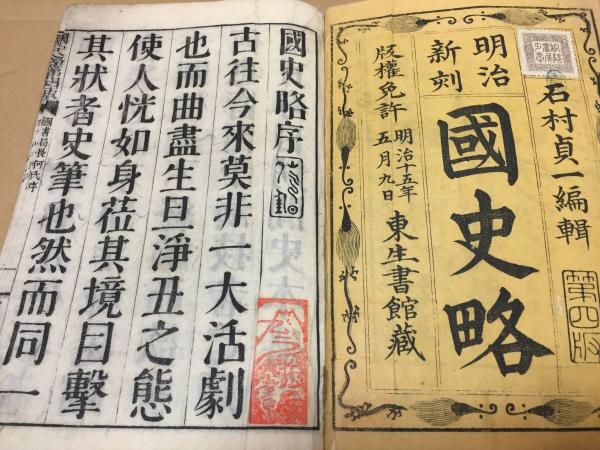 石村貞一編輯
第四版
明治
新刻
國史略
版權免許
明治十五年
五月九日
東生書館藏
國史略序
古往今來莫非一大活劇
也而曲盡生旦淨丑之態
使人恍如身莅其境目擊
其狀者史筆也然而同一